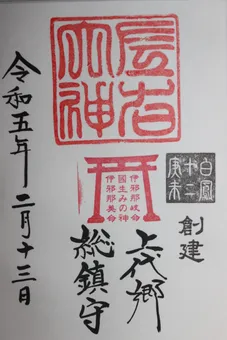 大神
伊邪那岐命
國生みの神
伊邪那美命
白鳳
十二
創建
上代郷
総鎮守
令和五年二月十三日